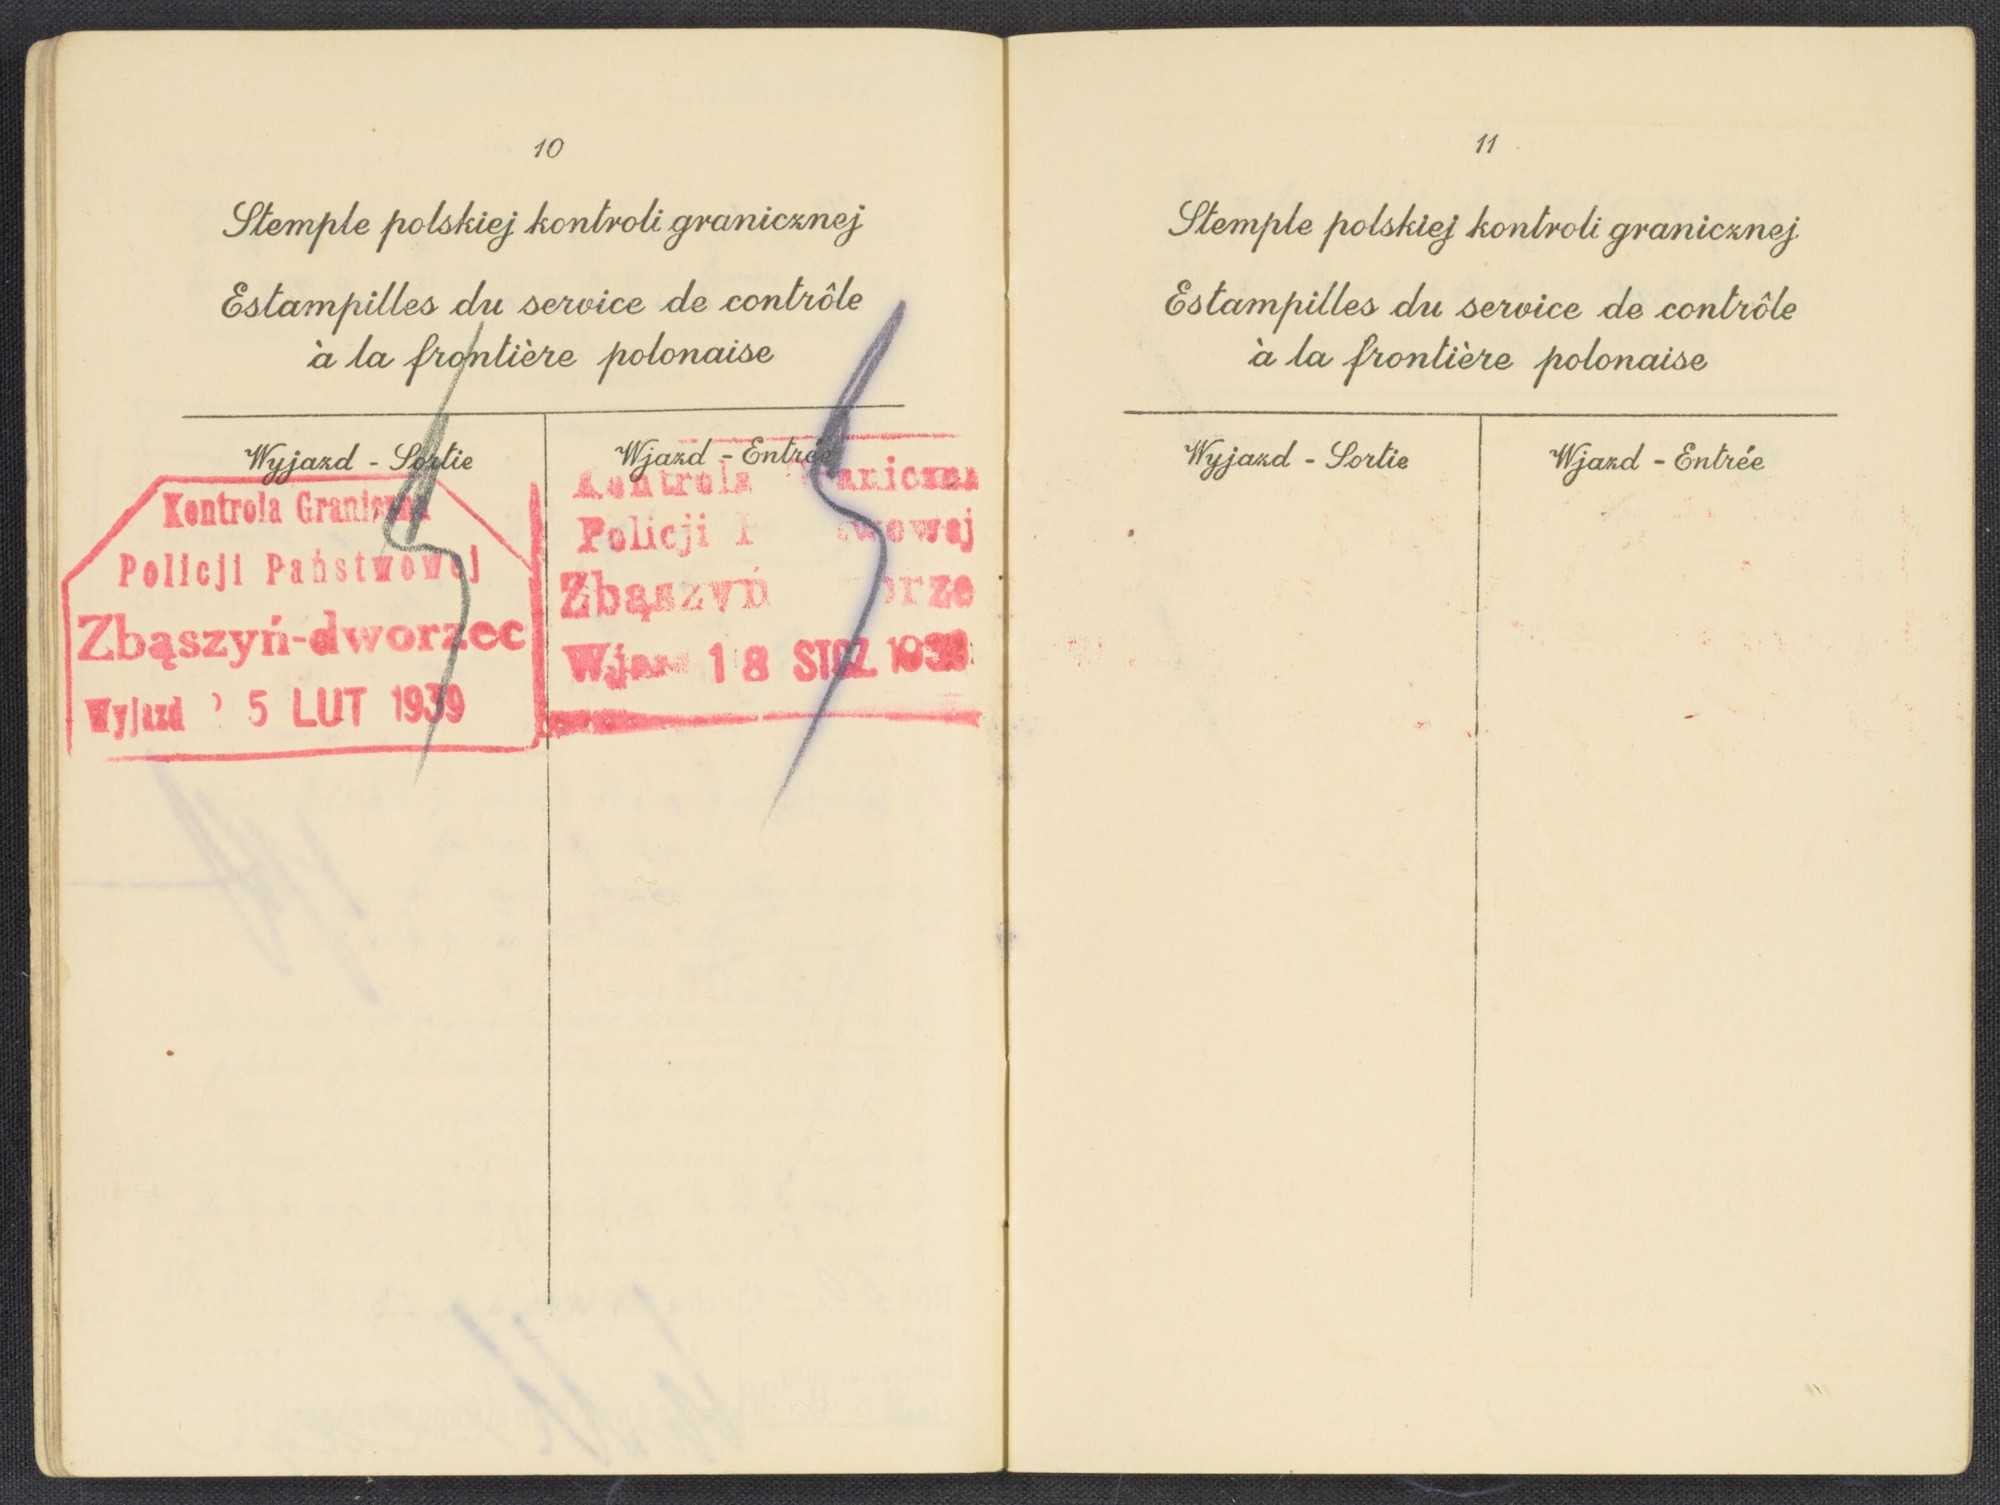 10
Stemple polskiej kontroli granicznej
Estampilles du service de contrôle
à la frontière polonaise
Wyjazd - Sortie
Wjazd - Entrée
Kontrola Graniczna
Policji Państwowej
Zbąszyń-dworzec
Wyjazd 5 LUT 1939
Kontrola Graniczna
Policji
Zbąszyń
18 STCZ. 1939
11
Stemple polskiej kontroli granicznej
Estampilles du service de contrôle
à la frontière polonaise
Wyjazd - Sortie
Wjazd - Entrée